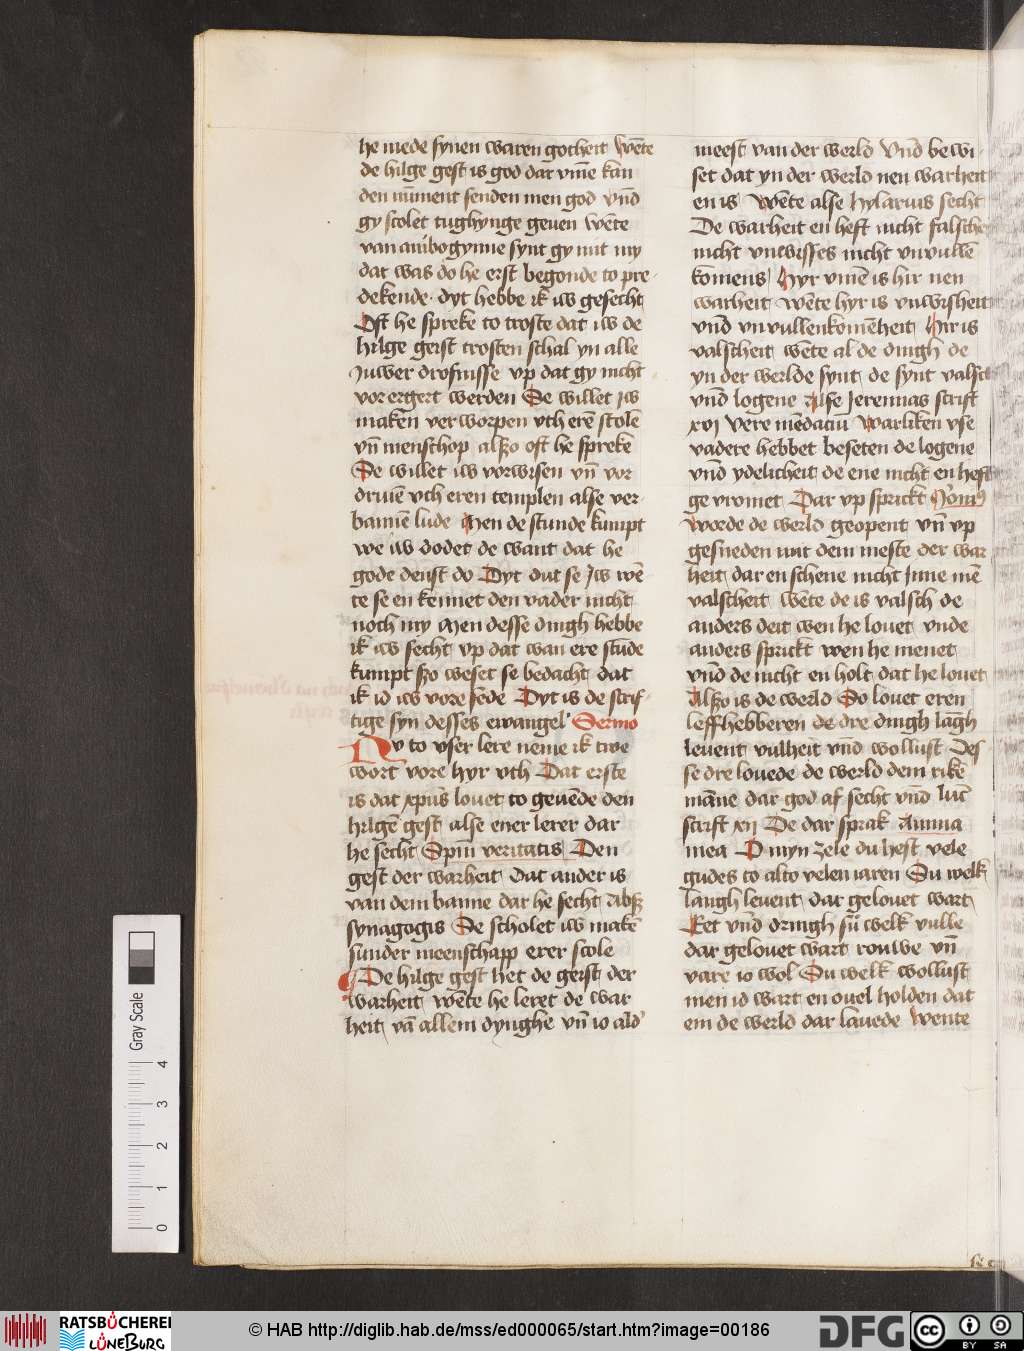 he mede synen waren gotheit wēte
de hilge gest is god dat vm̄e kan
den nūment senden men god vnd̄
gy scolet tughynge geuen wēte
van anbogynne synt gy mit my
dat was do he erst begonde to pre
dekende · dyt hebbe ik iw gesecht
Oft he spreke to troste dat iw de
hilge geist trosten schal yn alle
Juwer drofnisse vp dat gy nicht
vorergert werden Se willet iw
maken verworpen vth erē scole
vn̄ menschop alszo oft he spreke
Se willet iw vorwisen vn̄ vor
driuē vth eren templen alse ver
bannē lude Men de stunde kumpt
we iw dodet de want dat he
gode denst do Dyt dut se Jw wē
te se en kennet den vader nicht
noch my Men desse dingh hebbe
ik iw secht vp dat wan ere stūde
kumpt szo weset se bedacht dat
ik id iw vore sede Dyt is de scrif
tige syn desses ewangel' Sermo
Nv to vser lere neme ik twe
wort vore hyr vth Dat erste
is dat xpūs louet to geuēde den
hilgē gest alse ener lerer dar
he secht Spm̄ veritatis Den
gest der warheit dat ander is
van dem banne dar he secht Absz
synagogis Se scholet iw makē
sunder meenschapp erer scole
De hilge gest het de geist der
warheit wēte he leret de war
heit vā allem dynghe vn̄ io ald'
meest van der werld Vnd̄ bewi
set dat yn der werld nen warheit
en is Wēte alse hylarius secht
De warheit en heft nicht falsches
nicht vnwisses nicht vnvullē
komens Hyr vm̄e is hir nen
warheit wēte hyr is vnwisheit
vnd̄ vnvullenkomēheit Hir is
valscheit wēte al de dingh de
yn der werlde synt de synt valsch
vnd̄ logene Alse Jeremias scrift
xvj Vere mēdaciū Warliken vse
vadere hebbet beseten de logene
vnd̄ ydelicheit de ene nicht en heft
ge vromet Dar vp sprickt
Worde de werld geopent vn̄ vp
gesneden mit dem meste der war
heit dar en schene nicht Jnne mē
valscheit wēte de is valsch de
anders deit wen he louet vnde
anders sprickt wen he menet
vnd̄ de nicht en holt dat he louet
Alszo is de werld So louet eren
leffhebberen de dre dingh lāgh
leuent vulheit vnd̄ wollust Des
se dre louede de werld dem rikē
mānne dar god af secht vnd̄ luc̄
scrift xij De dar sprak Anima
mea O myn zele du hest vele
gudes to alto velen iaren Su welk
langh leuent dar gelouet wart
Ket vnd̄ dringh sū welk vulle
dar gelouet wart rouwe vn̄
vare io wol Su welk wollust
men id wart en ouel holden dat
em de werld dar lauede Wente
Gray Scale
4
3
2
1
0
RATSBÜCHEREI
LÜNEBURG
© HAB http://diglib.hab.de/mss/ed000065/start.htm?image=00186
DFG
cc
BY SA